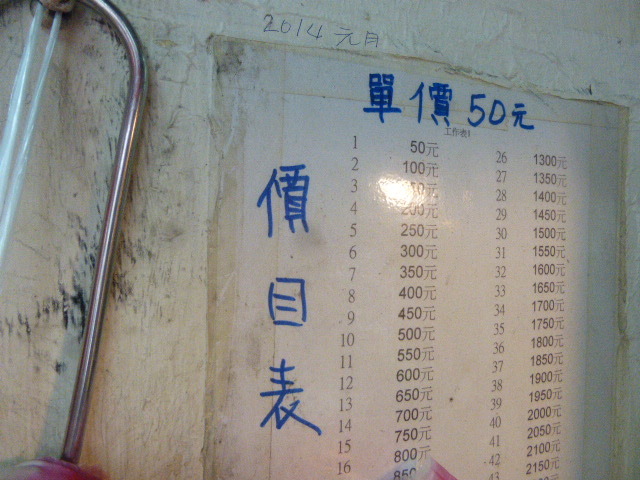 2014元月
單價50元
工作表1
價目表
1 50元 26 1300元
2 100元 27 1350元
3 28 1400元
4 200元 29 1450元
5 250元 30 1500元
6 300元 31 1550元
7 350元 32 1600元
8 400元 33 1650元
9 450元 34 1700元
10 500元 35 1750元
11 550元 36 1800元
12 600元 37 1850元
13 650元 38 1900元
14 700元 39 1950元
15 750元 40 2000元
16 800元 41 2050元
850 42 2100元
43 2150元